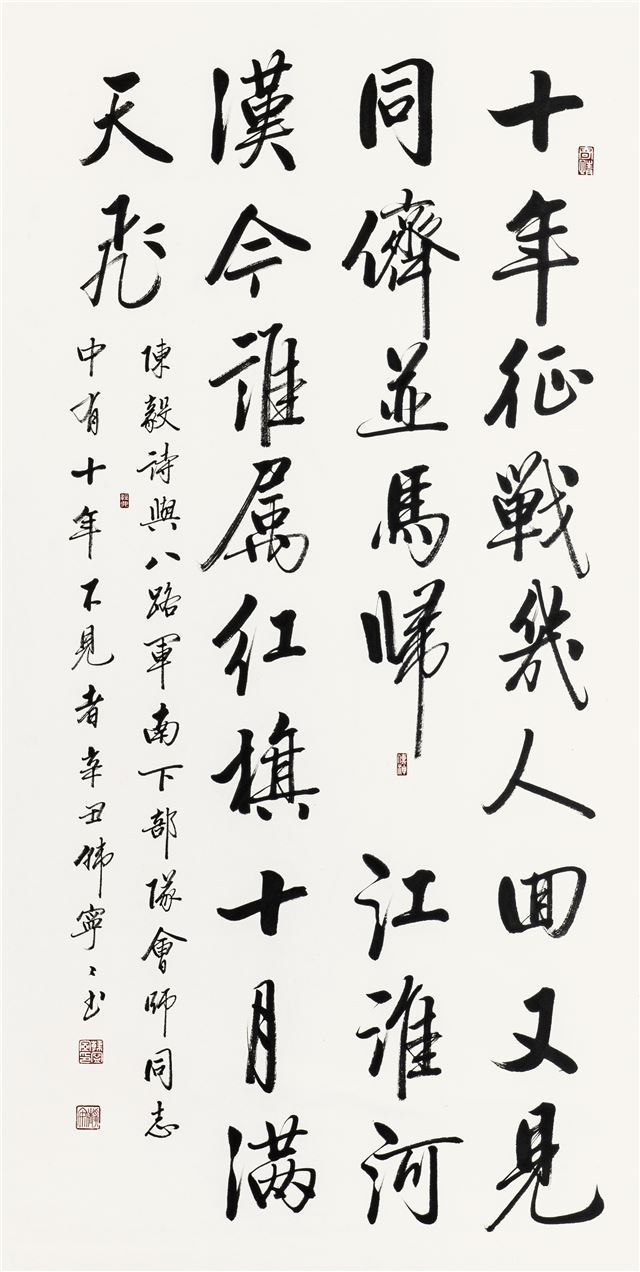 十年征戰幾人回又見
同儕並馬歸 江淮河
漢今誰属紅旗十月滿
天飛
陳毅詩與八路軍南下部隊會師同志
中有十年不見者辛丑韩寧〻书